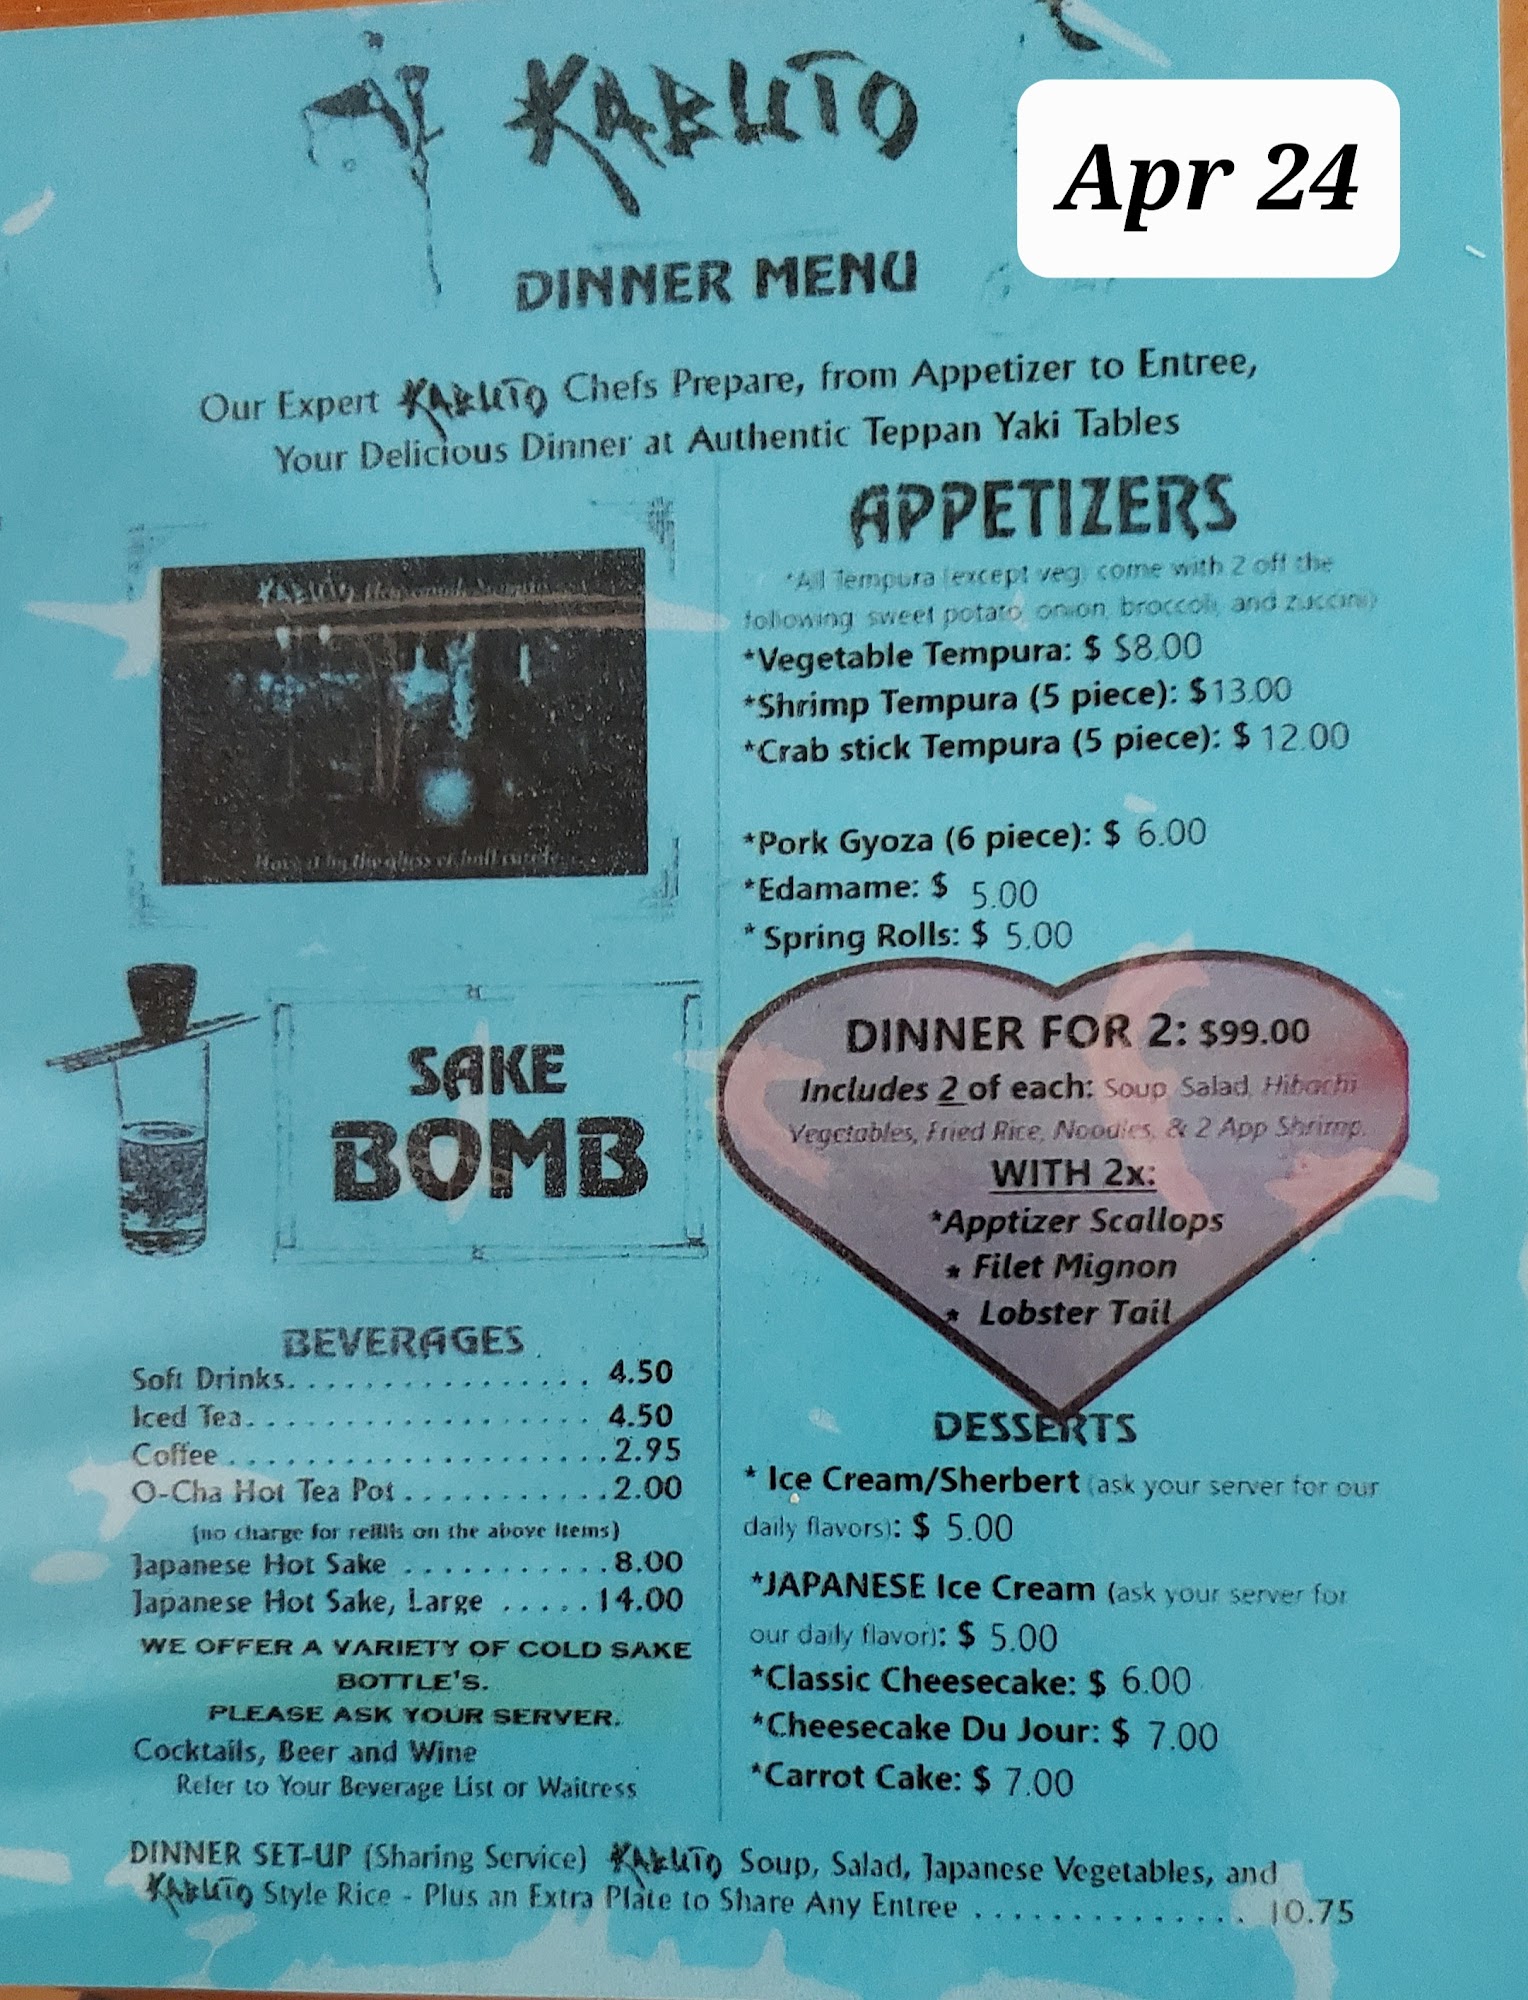 KABUTO
Apr 24
DINNER MENU
Our Expert KABUTO Chefs Prepare, from Appetizer to Entree,
Your Delicious Dinner at Authentic Teppan Yaki Tables
KABUTO
SAKE
BOMB
BEVERAGES
Soft Drinks. . . . . . . . . . . . . . . . 4.50
Iced Tea. . . . . . . . . . . . . . . . . . 4.50
Coffee . . . . . . . . . . . . . . . . . . . .2.95
O-Cha Hot Tea Pot . . . . . . . . . . .2.00
(no charge for refills on the above items)
Japanese Hot Sake . . . . . . . . . . .8.00
Japanese Hot Sake, Large . . . . .14.00
WE OFFER A VARIETY OF COLD SAKE
BOTTLE'S.
PLEASE ASK YOUR SERVER.
Cocktails, Beer and Wine
Refer to Your Beverage List or Waitress
APPETIZERS
*All Tempura (except veg) come with 2 off the
following: sweet potato, onion, broccoli, and zuccini)
*Vegetable Tempura: $ $8.00
*Shrimp Tempura (5 piece): $13.00
*Crab stick Tempura (5 piece): $ 12.00
*Pork Gyoza (6 piece): $ 6.00
*Edamame: $ 5.00
* Spring Rolls: $ 5.00
DINNER FOR 2: $99.00
Includes 2 of each: Soup, Salad, Hibachi
Vegetables, Fried Rice, Noodles, & 2 App Shrimp.
WITH 2x:
*Apptizer Scallops
* Filet Mignon
* Lobster Tail
DESSERTS
* Ice Cream/Sherbert (ask your server for our
daily flavors): $ 5.00
*JAPANESE Ice Cream (ask your server for
our daily flavor): $ 5.00
*Classic Cheesecake: $ 6.00
*Cheesecake Du Jour: $ 7.00
*Carrot Cake: $ 7.00
DINNER SET-UP (Sharing Service) KABUTO Soup, Salad, Japanese Vegetables, and
KABUTO Style Rice - Plus an Extra Plate to Share Any Entree . . . . . . . . . . . . . . 10.75